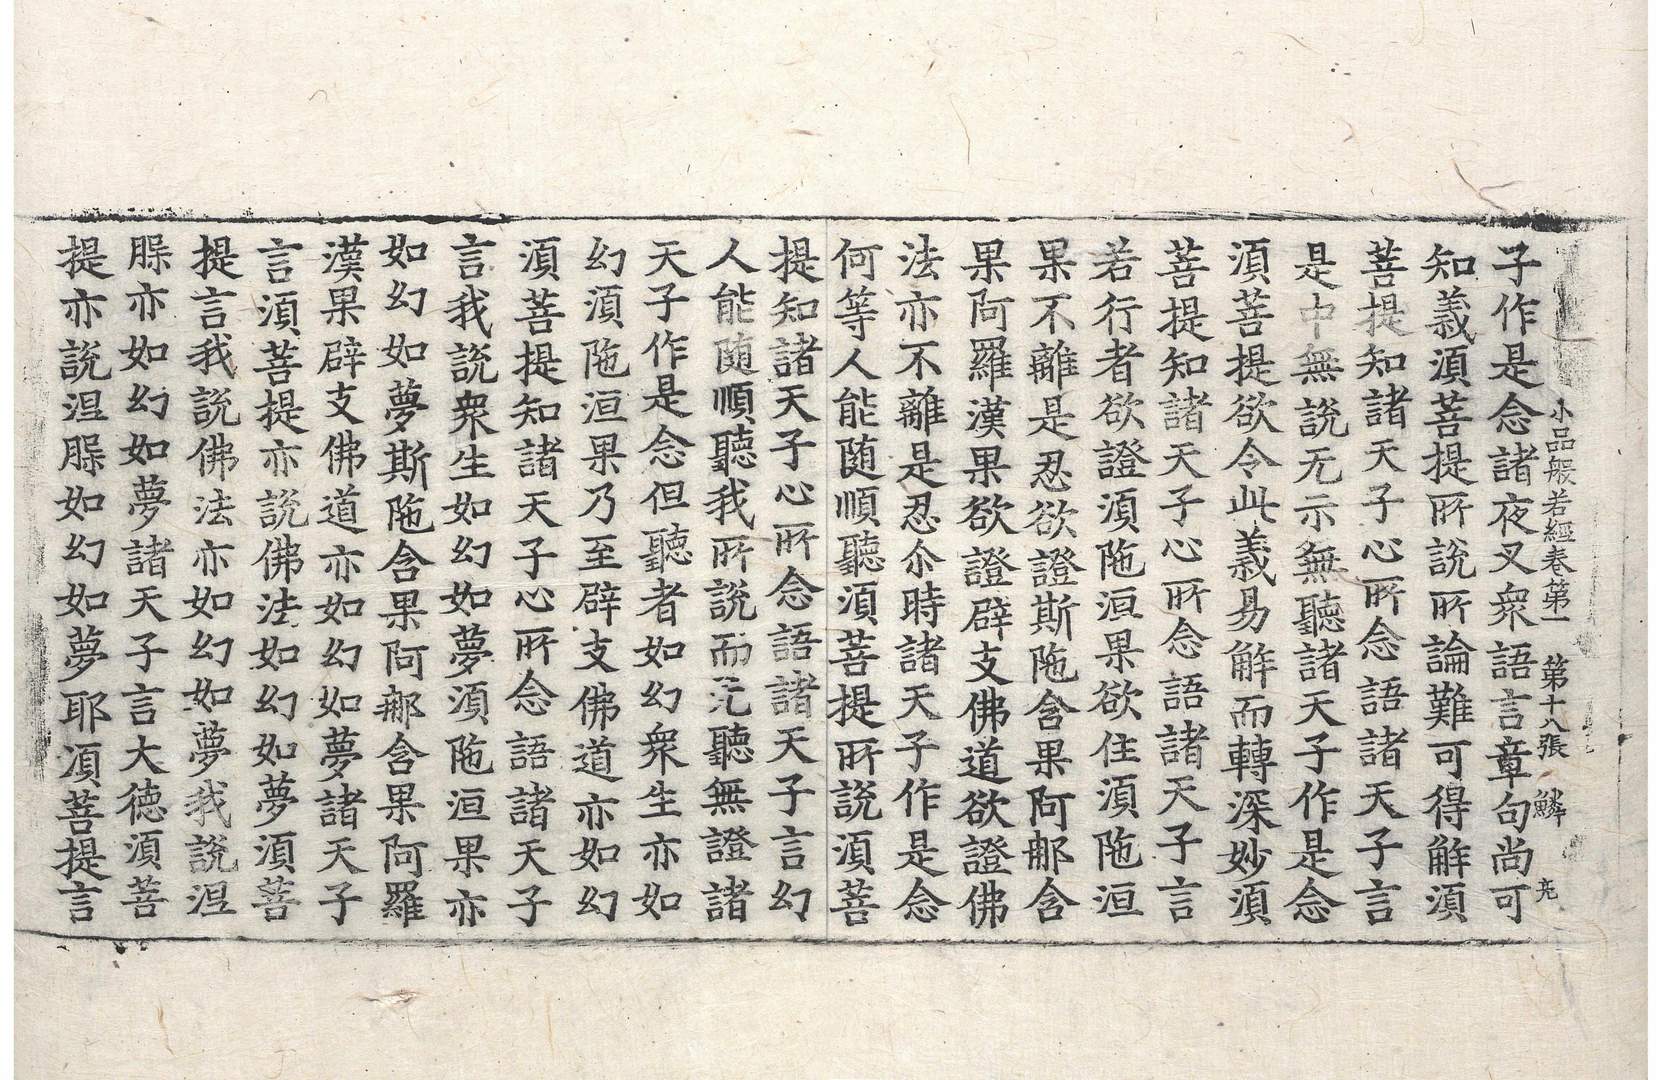 小品般若經卷第一　第十八張　鱗　尭
子作是念諸夜叉衆語言章句尚可
知義須菩提所說所論難可得解須
菩提知諸天子心所念語諸天子言
是中無說无示無聽諸天子作是念
須菩提欲令此義易解而轉深妙須
菩提知諸天子心所念語諸天子言
若行者欲證須陁洹果欲住須陁洹
果不離是忍欲證斯陁含果阿那含
果阿羅漢果欲證辟支佛道欲證佛
法亦不離是忍尒時諸天子作是念
何等人能随順聽須菩提所說須菩
提知諸天子心所念語諸天子言幻
人能随順聽我所說而无聽無證諸
天子作是念但聽者如幻衆生亦如
幻須陁洹果乃至辟支佛道亦如幻
須菩提知諸天子心所念語諸天子
言我說衆生如幻如夢須陁洹果亦
如幻如夢斯陁含果阿那含果阿羅
漢果辟支佛道亦如幻如夢諸天子
言須菩提亦說佛法如幻如夢須菩
提言我說佛法亦如幻如夢我說涅
槃亦如幻如夢諸天子言大德須菩
提亦說涅槃如幻如夢耶須菩提言